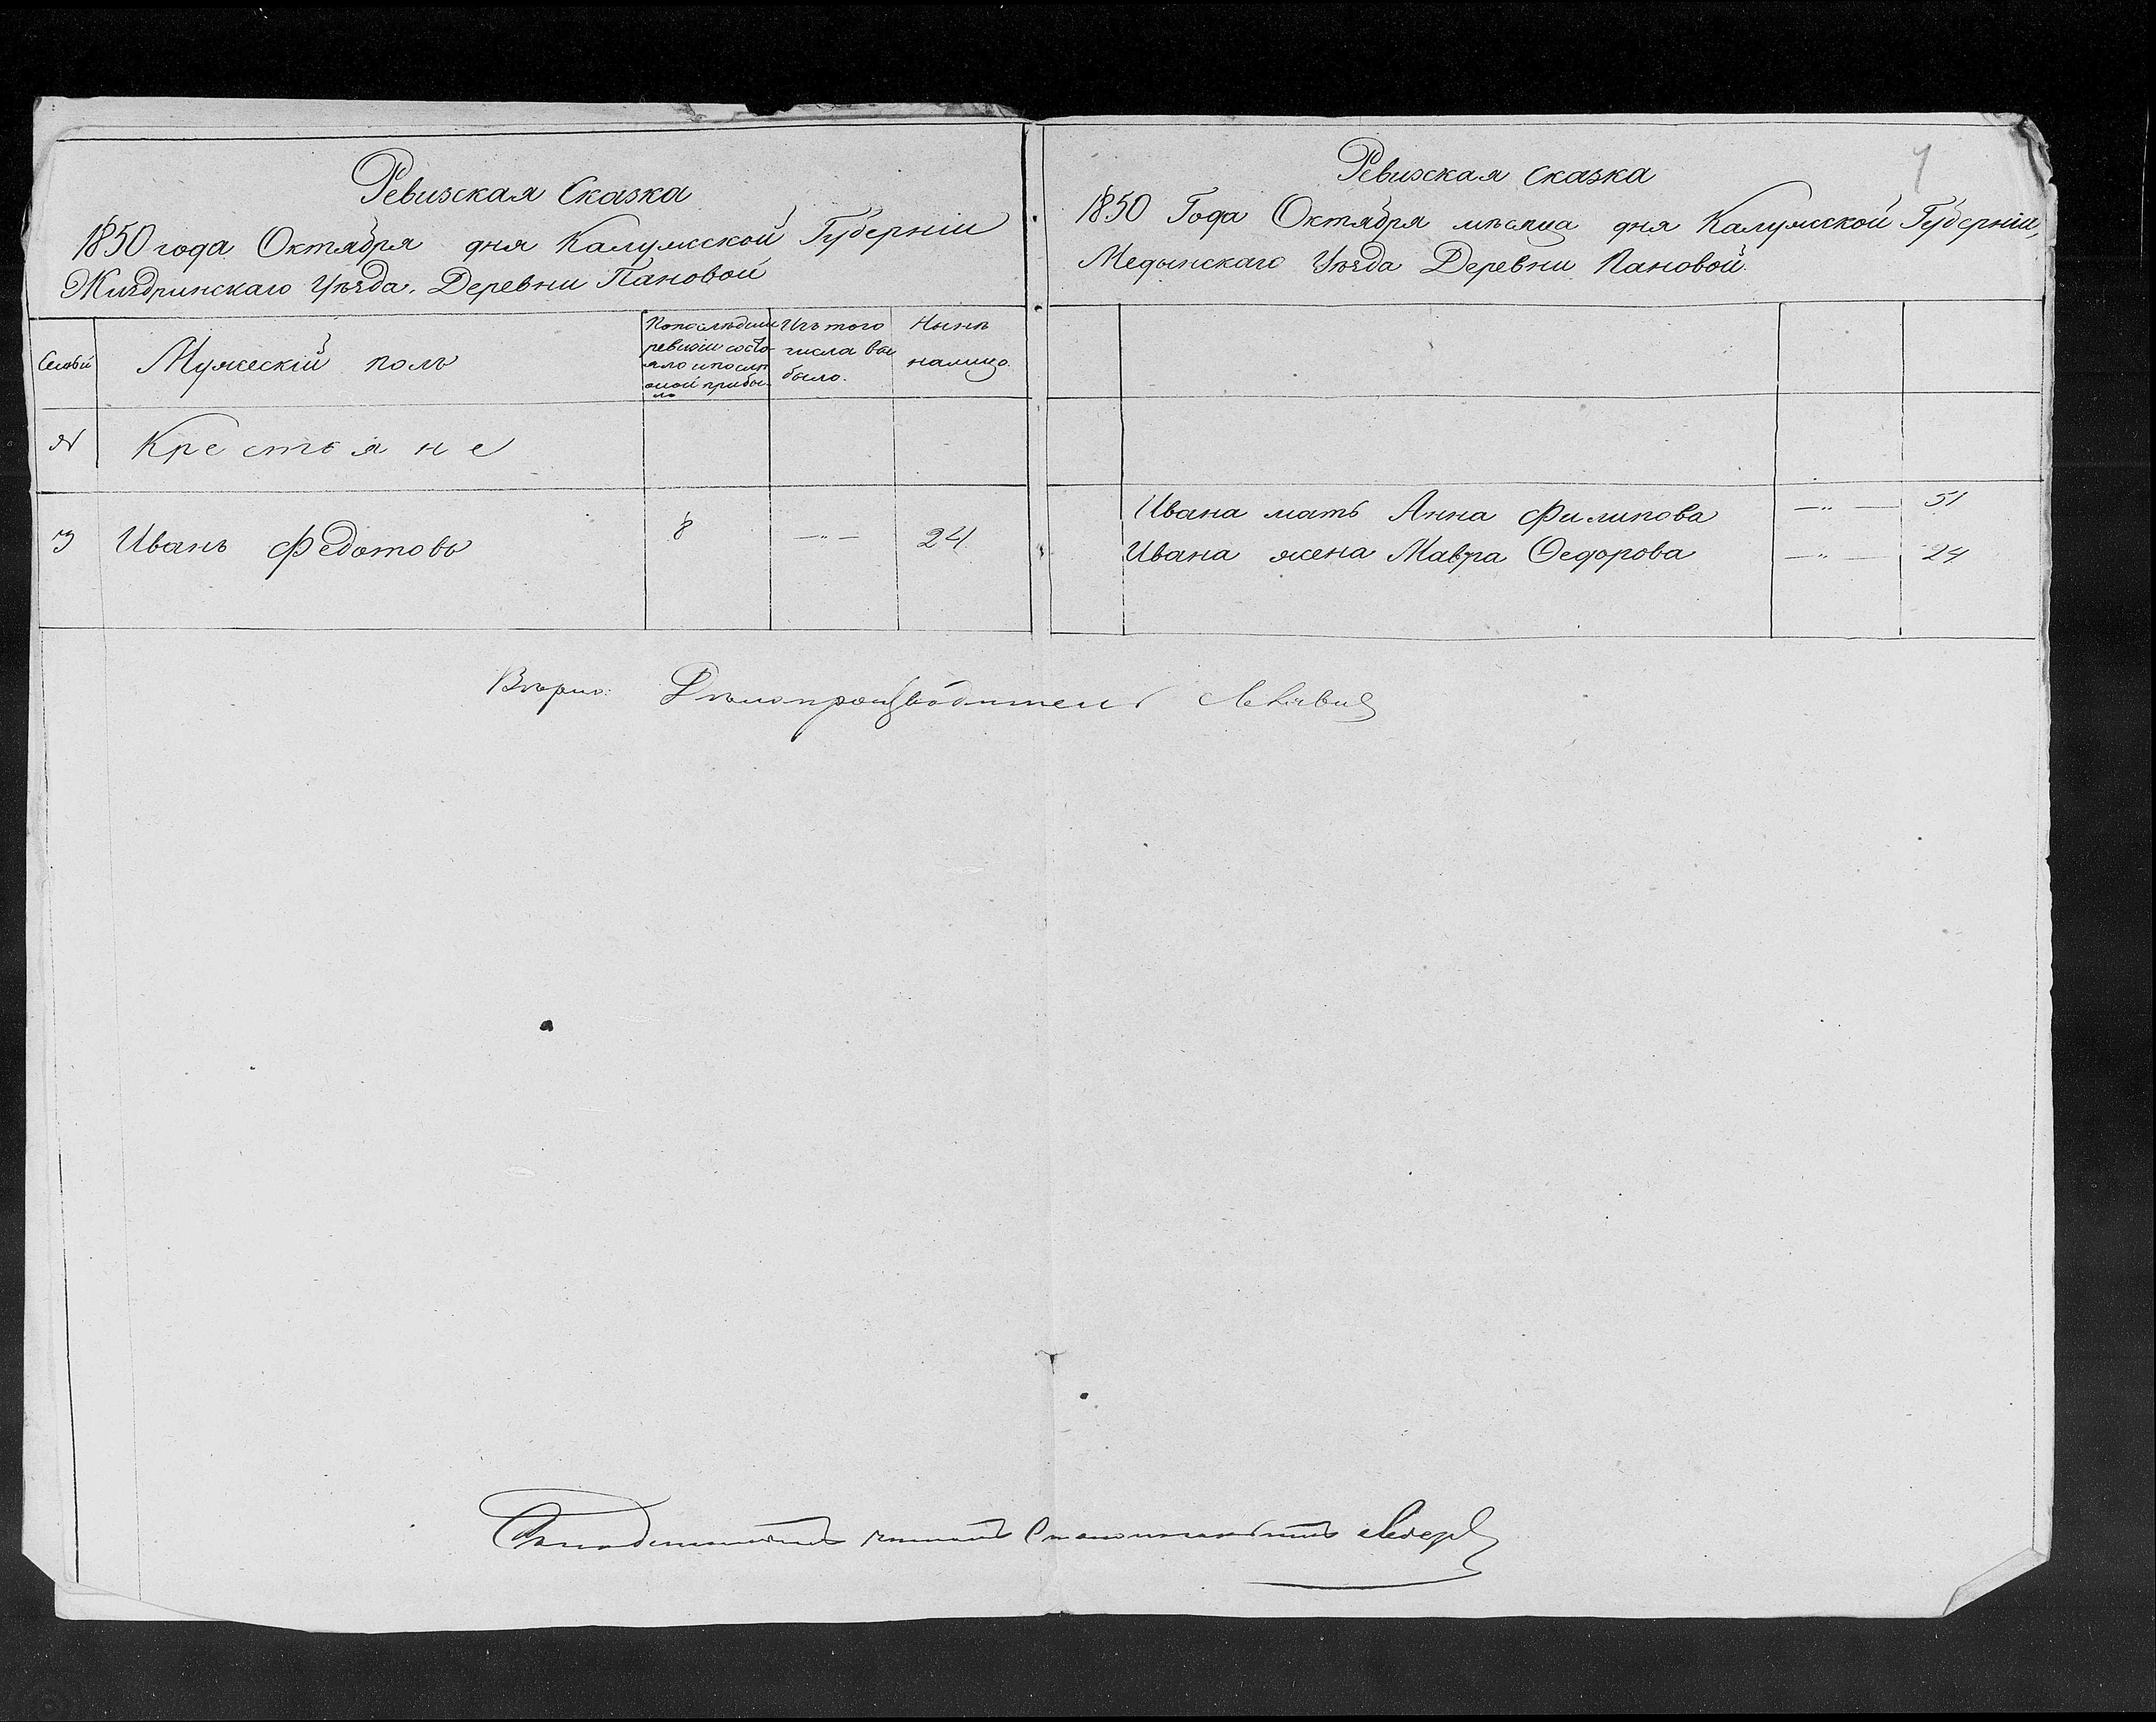 Ревизская Сказка
1850 года Октября дня Калужской Губерніи
Жиздринскаго Уѣзда. Деревни Пановой
Семьи
Мужескій полъ
По послѣдней
ревизіи состо-
яло и послѣ
оной прибы-
ло
Изъ того
числа вы
было.
Нынѣ
налицо.
№
Крестьяне
3 Иванъ Федотовъ 8 —„— 24
Ревизская Сказка
1850 Года Октября мѣсяца дня Калужской Губерніи,
Медынскаго Уѣзда Деревни Пановой.
Ивана мать Анна Филипова —„— 51
Ивана жена Мавра Ѳедорова —„— 24
Вѣрно: Дѣлопроизводитель